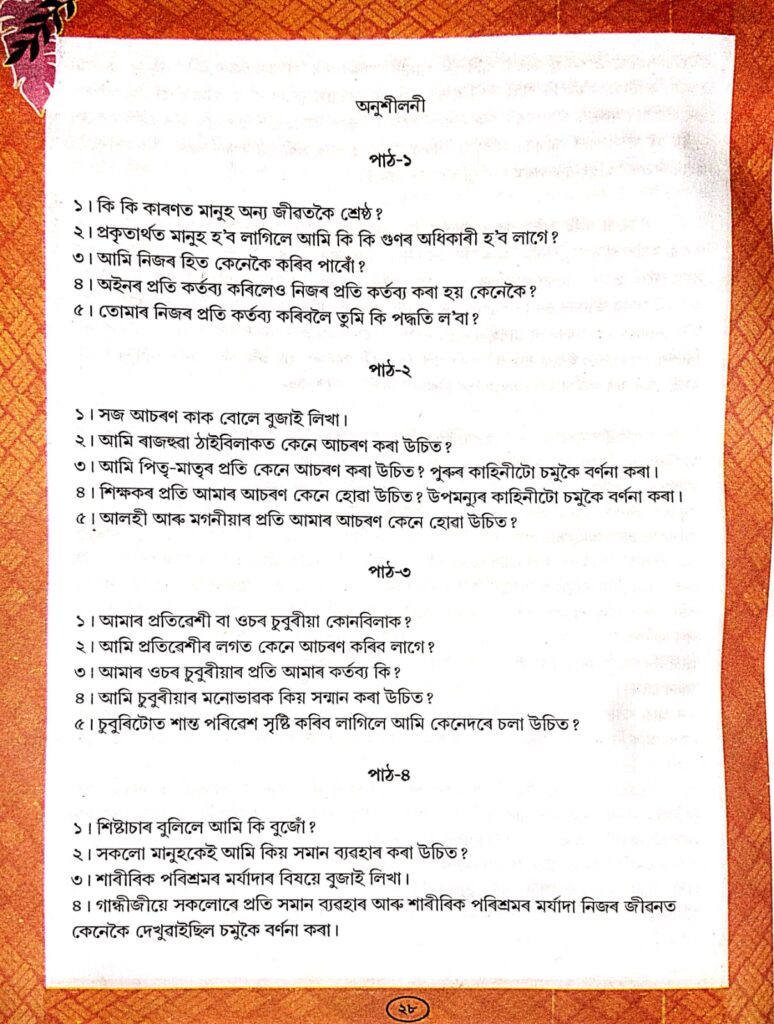 অনুশীলনী
পাঠ-১
১। কি কি কাৰণত মানুহ অন্য জীৱতকৈ শ্ৰেষ্ঠ?
২। প্ৰকৃতাৰ্থত মানুহ হ'ব লাগিলে আমি কি কি গুণৰ অধিকাৰী হ'ব লাগে?
৩। আমি নিজৰ হিত কেনেকৈ কৰিব পাৰোঁ?
৪। অইনৰ প্ৰতি কৰ্তব্য কৰিলেও নিজৰ প্ৰতি কৰ্তব্য কৰা হয় কেনেকৈ?
৫। তোমাৰ নিজৰ প্ৰতি কৰ্তব্য কৰিবলৈ তুমি কি পদ্ধতি ল'বা?
পাঠ-২
১। সজ আচৰণ কাক বোলে বুজাই লিখা।
২। আমি ৰাজহুৱা ঠাইবিলাকত কেনে আচৰণ কৰা উচিত?
৩। আমি পিতৃ-মাতৃৰ প্ৰতি কেনে আচৰণ কৰা উচিত? পুৰুৰ কাহিনীটো চমুকৈ বৰ্ণনা কৰা।
৪। শিক্ষকৰ প্ৰতি আমাৰ আচৰণ কেনে হোৱা উচিত? উপমন্যুৰ কাহিনীটো চমুকৈ বৰ্ণনা কৰা।
৫। আলহী আৰু মগনীয়াৰ প্ৰতি আমাৰ আচৰণ কেনে হোৱা উচিত?
পাঠ-৩
১। আমাৰ প্ৰতিৱেশী বা ওচৰ চুবুৰীয়া কোনবিলাক?
২। আমি প্ৰতিৱেশীৰ লগত কেনে আচৰণ কৰিব লাগে?
৩। আমাৰ ওচৰ চুবুৰীয়াৰ প্ৰতি আমাৰ কৰ্তব্য কি?
৪। আমি চুবুৰীয়াৰ মনোভাৱক কিয় সন্মান কৰা উচিত?
৫। চুবুৰিটোত শান্ত পৰিৱেশ সৃষ্টি কৰিব লাগিলে আমি কেনেদৰে চলা উচিত?
পাঠ-৪
১। শিষ্টাচাৰ বুলিলে আমি কি বুজোঁ?
২। সকলো মানুহকেই আমি কিয় সমান ব্যৱহাৰ কৰা উচিত?
৩। শাৰীৰিক পৰিশ্ৰমৰ মৰ্যাদাৰ বিষয়ে বুজাই লিখা।
৪। গান্ধীজীয়ে সকলোৰে প্ৰতি সমান ব্যৱহাৰ আৰু শাৰীৰিক পৰিশ্ৰমৰ মৰ্যাদা নিজৰ জীৱনত
কেনেকৈ দেখুৱাইছিল চমুকৈ বৰ্ণনা কৰা।
২৮